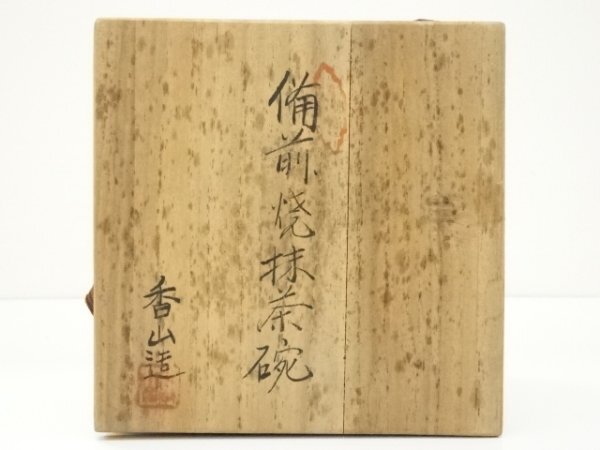 備前焼抹茶碗
香山造